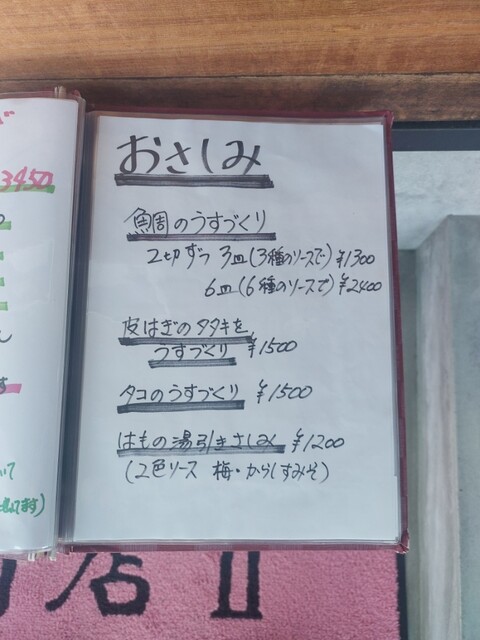 3450
おさしみ
鯛のうすづくり
2切ずつ 3皿(3種のソースで)¥1300
6皿(6種のソースで)¥2400
皮はぎのタタキを
うすづくり ¥1500
タコのうすづくり ¥1500
はもの湯引きさしみ ¥1200
(2色ソース 梅・からしすみそ)
店 II